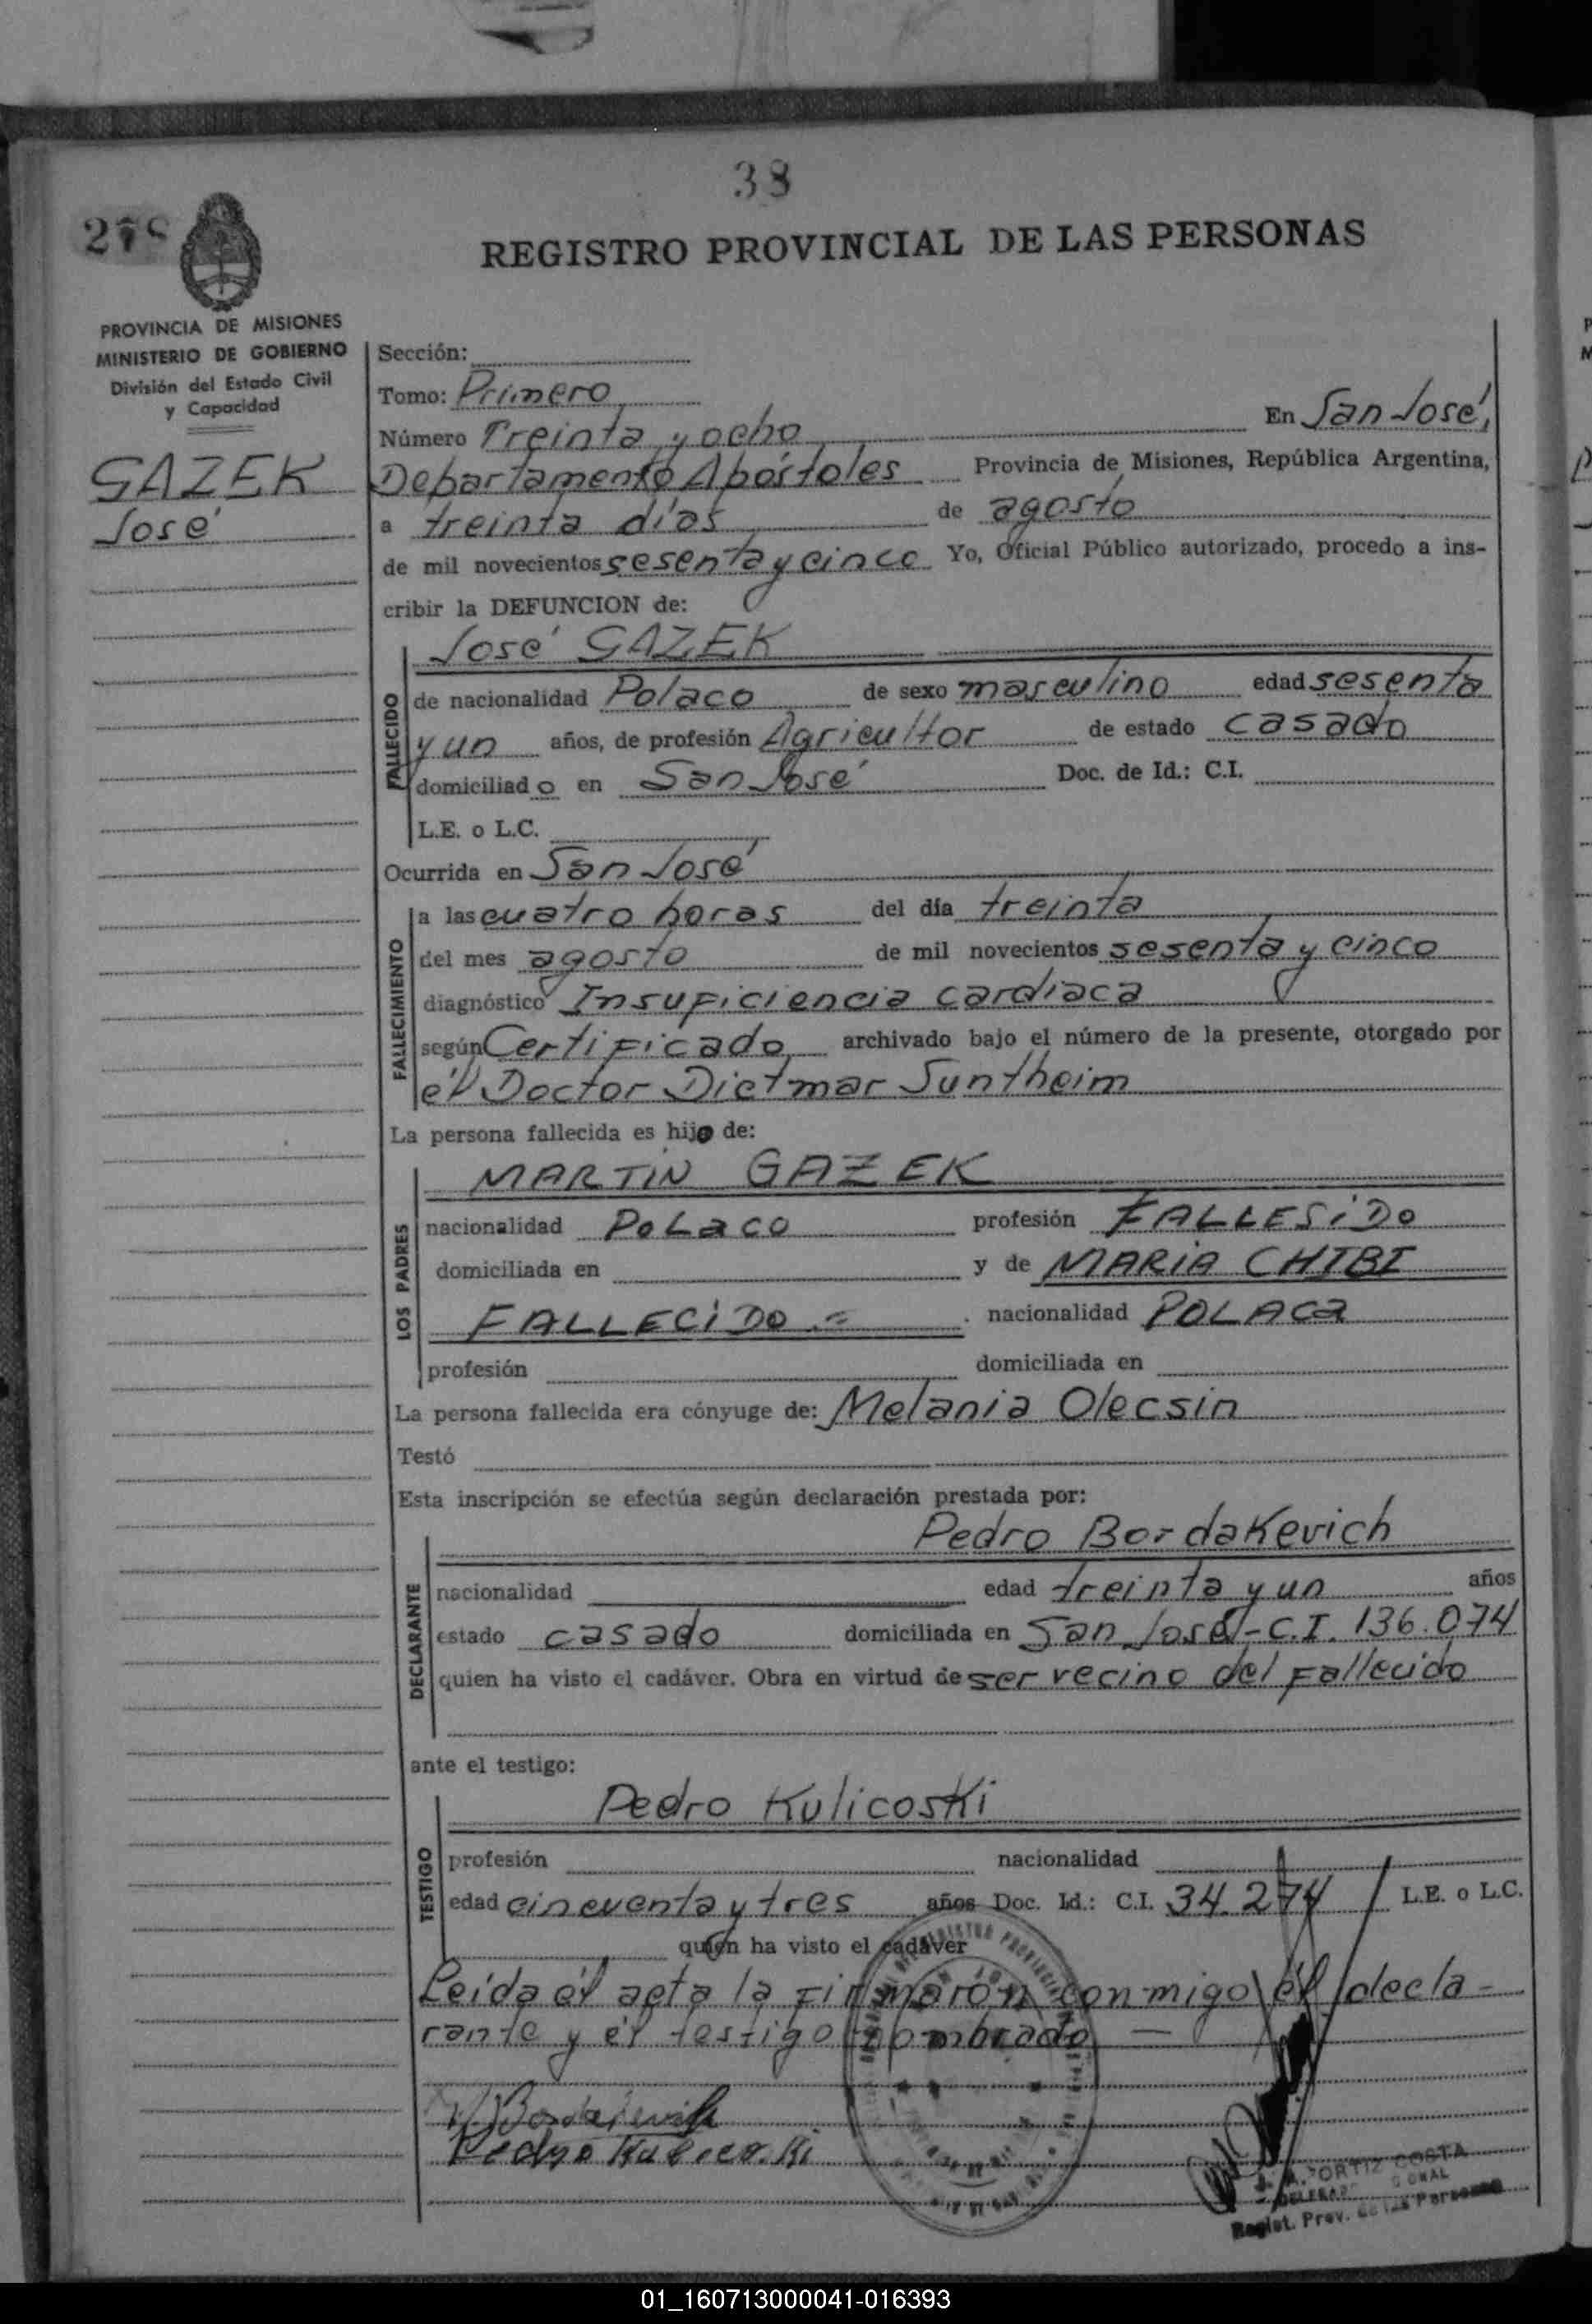 38
278
REGISTRO PROVINCIAL DE LAS PERSONAS
PROVINCIA DE MISIONES
MINISTERIO DE GOBIERNO
División del Estado Civil
y Capacidad
GAZEK
José
Sección:
Tomo: Primero
Número Treinta y ocho En San José,
Departamento Apóstoles Provincia de Misiones, República Argentina,
a treinta días de agosto
de mil novecientos sesenta y cinco Yo, Oficial Público autorizado, procedo a ins-
cribir la DEFUNCION de:
José GAZEK
FALLECIDO
de nacionalidad Polaco de sexo masculino edad sesenta
y un años, de profesión Agricultor de estado casado
domiciliado en San José Doc. de Id.: C.I.
L.E. o L.C.
Ocurrida en San José
FALLECIMIENTO
a las cuatro horas del día treinta
del mes agosto de mil novecientos sesenta y cinco
diagnóstico Insuficiencia cardiaca
según Certificado archivado bajo el número de la presente, otorgado por
él Doctor Dietmar Suntheim
La persona fallecida es hijo de:
LOS PADRES
MARTIN GAZEK
nacionalidad Polaco profesión FALLESIDO
domiciliada en y de MARIA CHIBI
FALLECIDO.= nacionalidad POLACA
profesión domiciliada en
La persona fallecida era cónyuge de: Melania Olecsin
Testó
Esta inscripción se efectúa según declaración prestada por:
DECLARANTE
Pedro Bordakevich
nacionalidad edad treinta y un años
estado casado domiciliada en San José-C.I. 136.074
quien ha visto el cadáver. Obra en virtud de ser vecino del fallecido
ante el testigo:
TESTIGO
Pedro Kulicoski
profesión nacionalidad
edad cincuenta y tres años Doc. Id.: C.I. 34.274 L.E. o L.C.
quien ha visto el cadáver
Leida él acta la firmaron conmigo él decla-
rante y él testigo nombrado —
Bordakevich
Pedro Kulicoski
A. ORTIZ COSTA
Regist. Prov. de las Personas
01_160713000041-016393